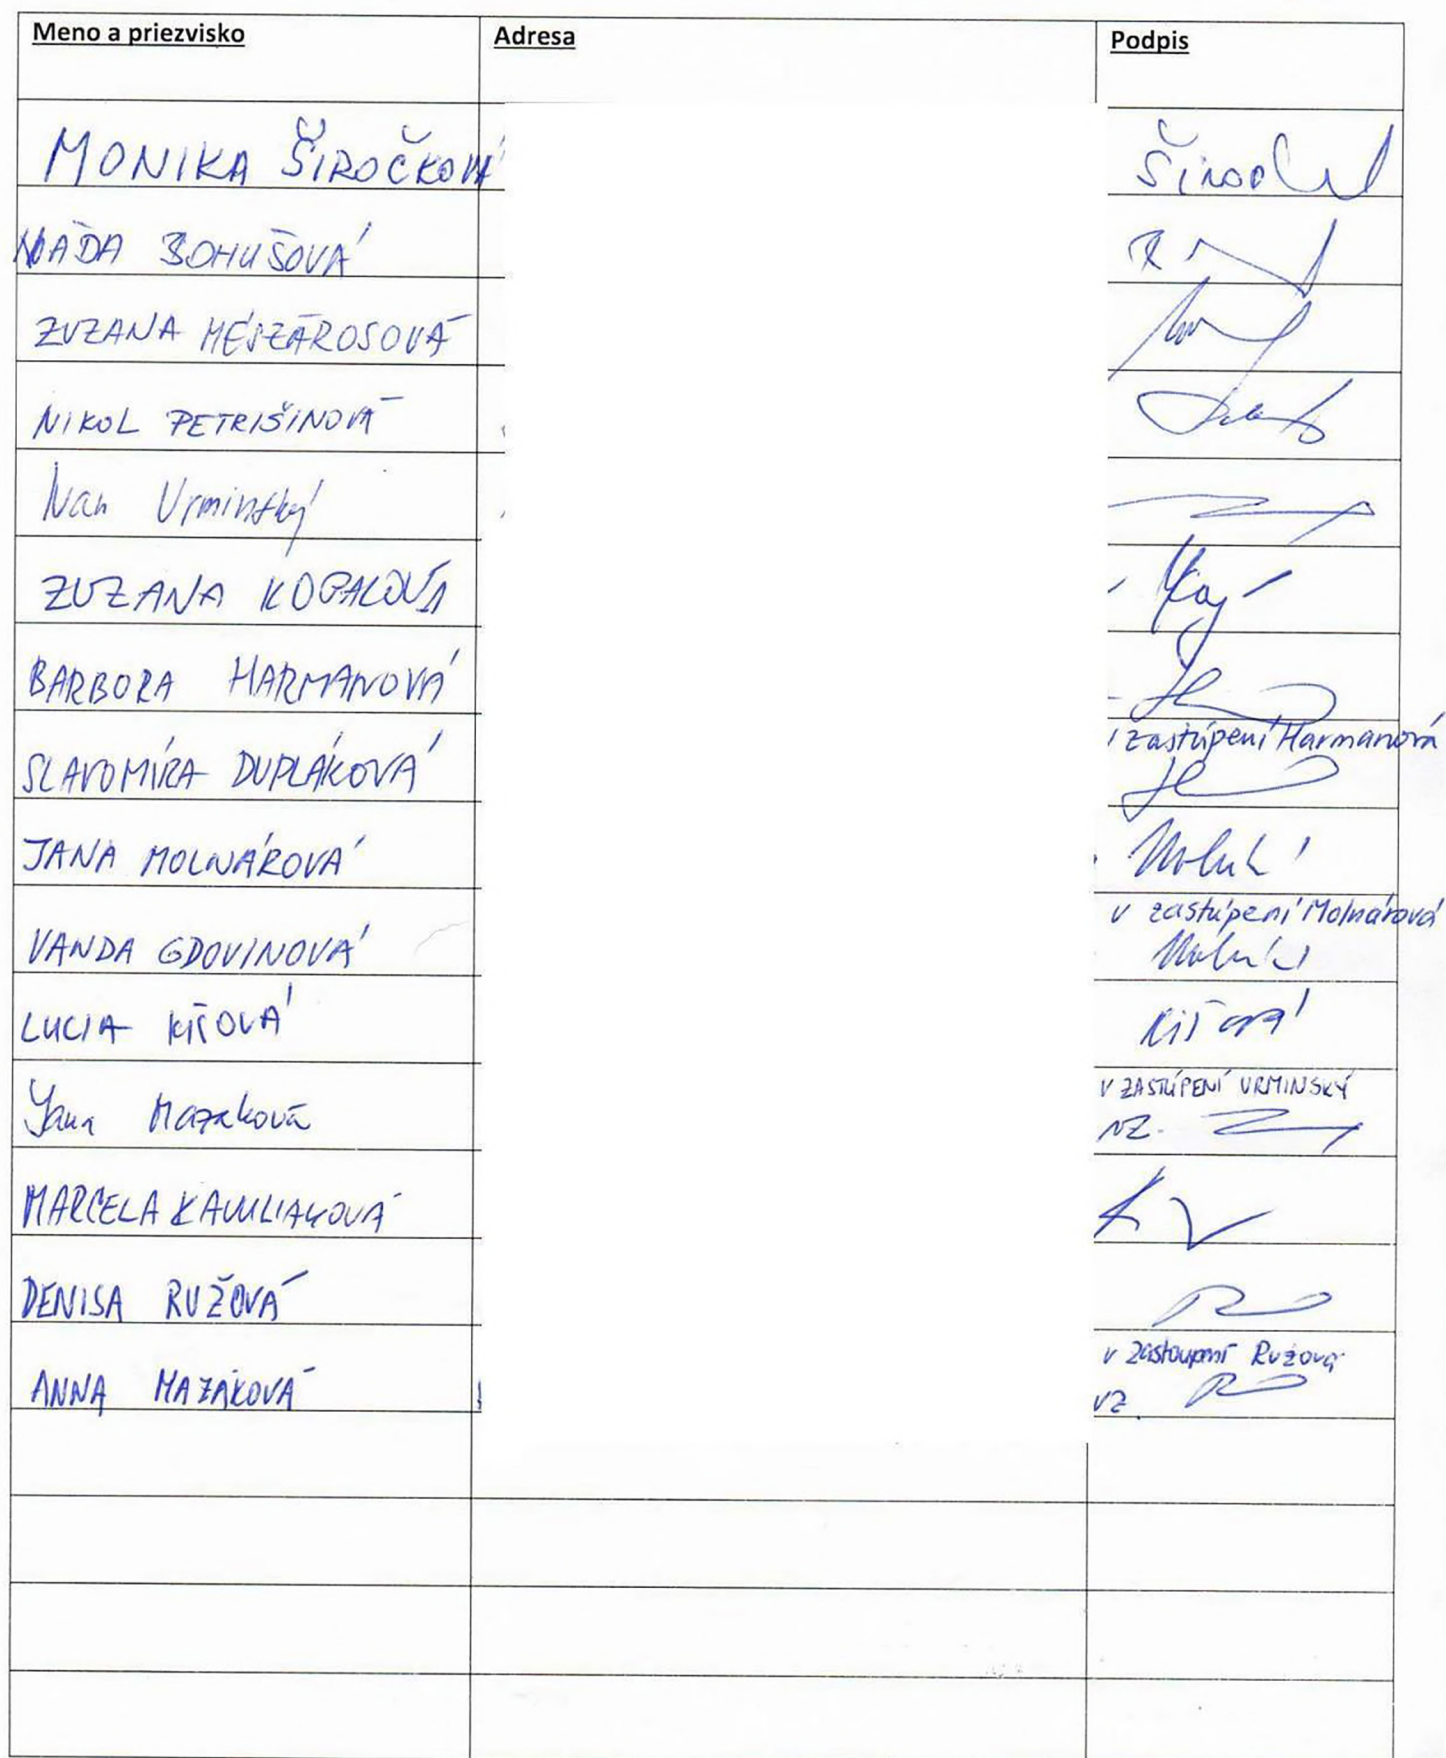 Meno a priezvisko Adresa Podpis
MONIKA ŠIROČKOVÁ
NAĎA BOHUŠOVÁ
ZUZANA MÉSZÁROSOVÁ
NIKOL PETRIŠINOVÁ
Ivan Urminský
ZUZANA KOPALOVÁ
BARBORA HARMANOVÁ
SLAVOMÍRA DUPLÁKOVÁ zastúpení Harmanová
JANA MOLNÁROVÁ
VANDA GDOVINOVÁ v zastúpení Molnárová
LUCIA KIŠOVÁ Kišová
Jana Mazaková V ZASTÚPENÍ URMINSKÝ
VZ.
MARCELA
DENISA RUŽOVÁ
ANNA MAZÁKOVÁ v zastoupení Ružová
VZ.